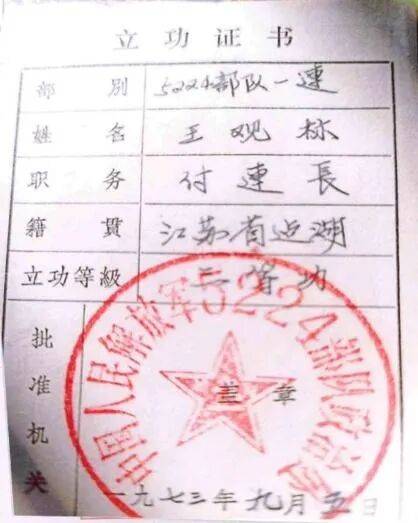 立功证书
部别 5224部队一連
姓名 王观标
职务 付連長
籍貫 江苏省近湖
立功等級 三等功
批准机关
中国人民解放军5224部队政治处
盖章
一九七三年九月五日